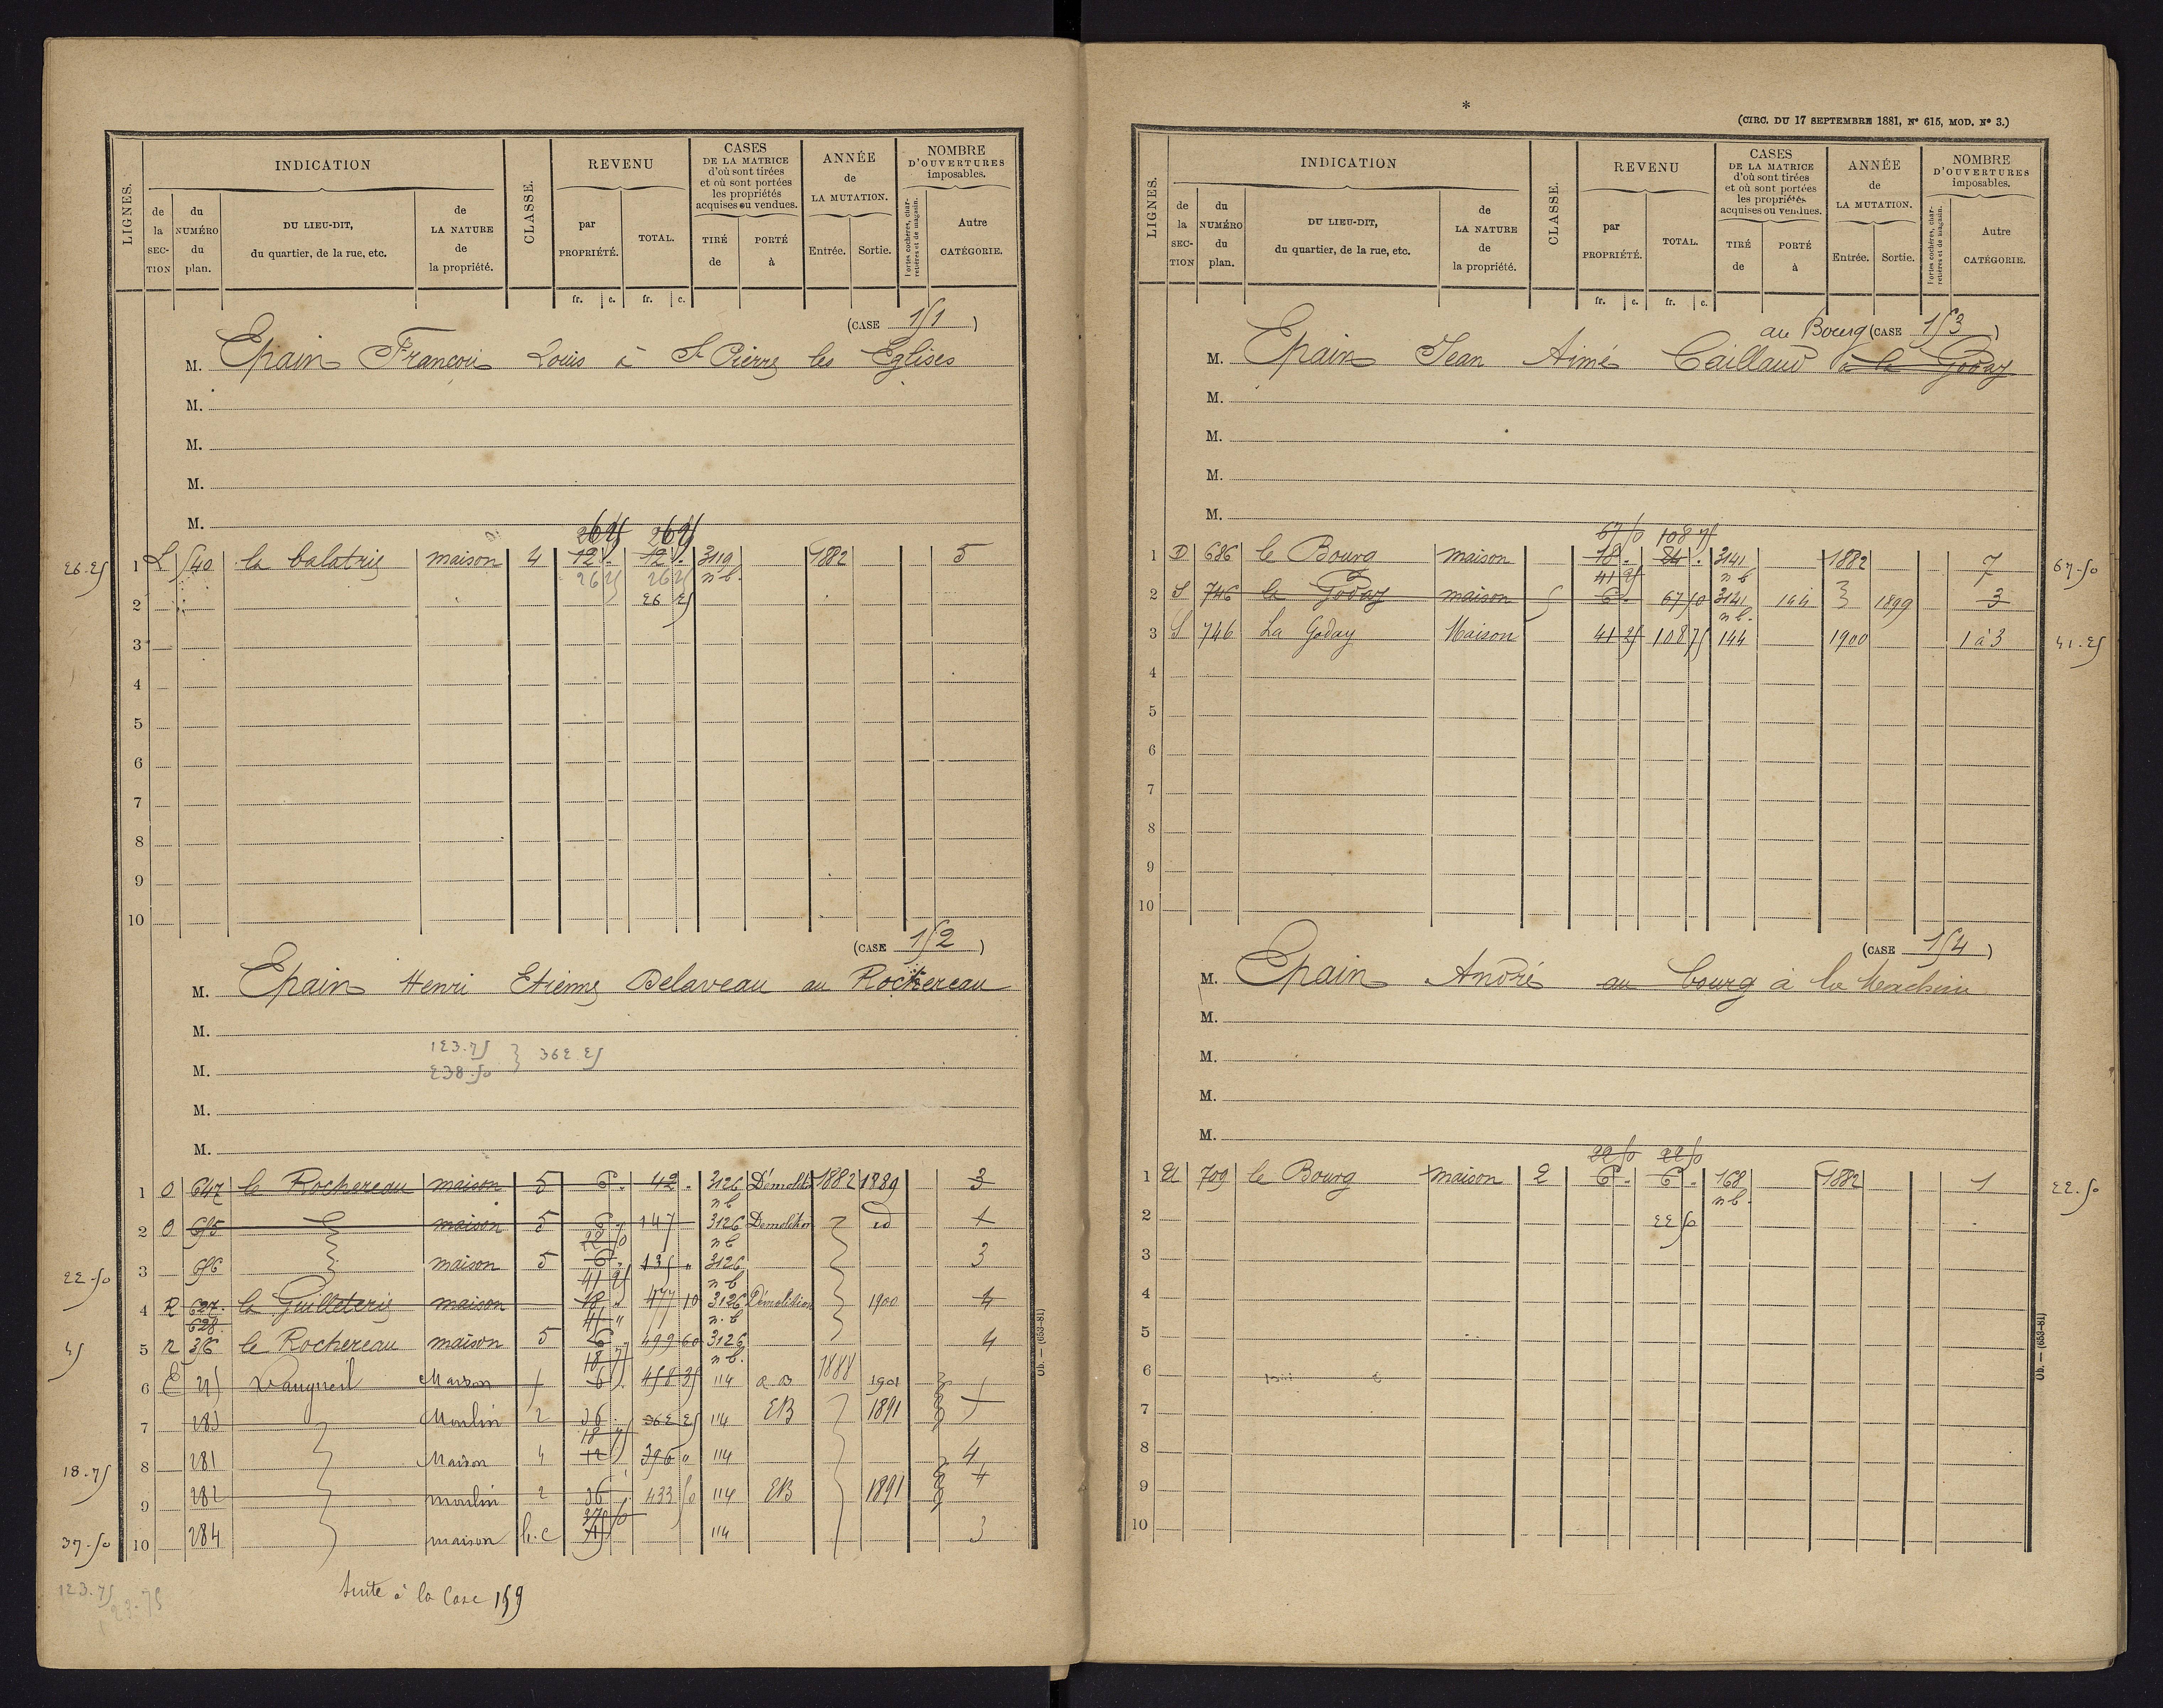 LIGNES.
INDICATION
de la SECTION
du NUMÉRO du plan.
DU LIEU-DIT, du quartier, de la rue, etc.
de LA NATURE de la propriété.
CLASSE.
REVENU
par PROPRIÉTÉ.
TOTAL.
fr. c. fr. c.
CASES DE LA MATRICE d'où sont tirées et où sont portées les propriétés acquises ou vendues.
TIRÉ de
PORTÉ à
ANNÉE de LA MUTATION.
Entrée. Sortie.
NOMBRE D'OUVERTURES imposables.
Portes cochères, charretières et de magasin.
Autre CATÉGORIE.
(CASE 151)
M. Epain François Louis à St Pierre les Eglises
M.
M.
M.
M.
26 25 26 25
26.25 1 L 540 maison 4 12 . 12 . 3119 1882 5
26 25 26 25 n b.
2 26 25
3
4
5
6
7
8
9
10
(CASE 152)
M. Epain Henri Etienne Delaveau au Rochereau
M.
123.75
M. 238.50 } 362 25
M.
M.
1 O 647 le Rochereau maison 5 6 . 42 . 3126 Démolition 1882 1889 3
n b
2 O 695 maison 5 6 " 147 3126 Demolition id 1
22 50 n b
22.50 3 696 maison 5 6 " 135 " 3126 3
41 25 n b
4 R 627. la Guilleterie maison 18 " 477 10 3126 Démolition 1900 4
628. 41 " n. b
45 5 R 36 le Rochereau maison 5 6 " 499 60 3126 4
18 75 n b.
6 E Maison 6 . 458 35 114 1888 1901
7 283 Moulin 2 36 . 362 25 114 EB 1891
18 75
18.75 8 281 Maison 4 12 396 " 114 4
9 282 moulin 2 36 433 50 114 EB 1891 4
37 50
37.50 10 284 maison h.c 114 3
123.75
123.75
Suite à la Case 159
Ob. — (653-81)
*
(CIRC. DU 17 SEPTEMBRE 1881, N° 615, MOD. N° 3.)
LIGNES.
INDICATION
de la SECTION
du NUMÉRO du plan.
DU LIEU-DIT, du quartier, de la rue, etc.
de LA NATURE de la propriété.
CLASSE.
REVENU
par PROPRIÉTÉ.
TOTAL.
fr. c. fr. c.
CASES DE LA MATRICE d'où sont tirées et où sont portées les propriétés acquises ou vendues.
TIRÉ de
PORTÉ à
ANNÉE de LA MUTATION.
Entrée. Sortie.
NOMBRE D'OUVERTURES imposables.
Portes cochères, charretières et de magasin.
Autre CATÉGORIE.
au Bourg (CASE 153)
M. Epain Jean Aimé Caillaud à la Goday
M.
M.
M.
M.
67 50 108 75
1 D 686 le Bourg maison 18 . 24 . 3141 1882 7 67.50
41 25 n b
2 S 746 la Goday maison 5 6 . 67 50 3141 144 1899 3
n b.
3 S 746 La Goday Maison 41 25 108 75 144 1900 1 à 3 41.25
4
5
6
7
8
9
10
(CASE 154)
M. Epain André au bourg à
M.
M.
M.
M.
22 50 22 50
1 709 le Bourg maison 2 6 . 6 . 168 1882 1 22.50
n b.
2 22 50
3
4
5
6
7
8
9
10
Ob. — (653-81)